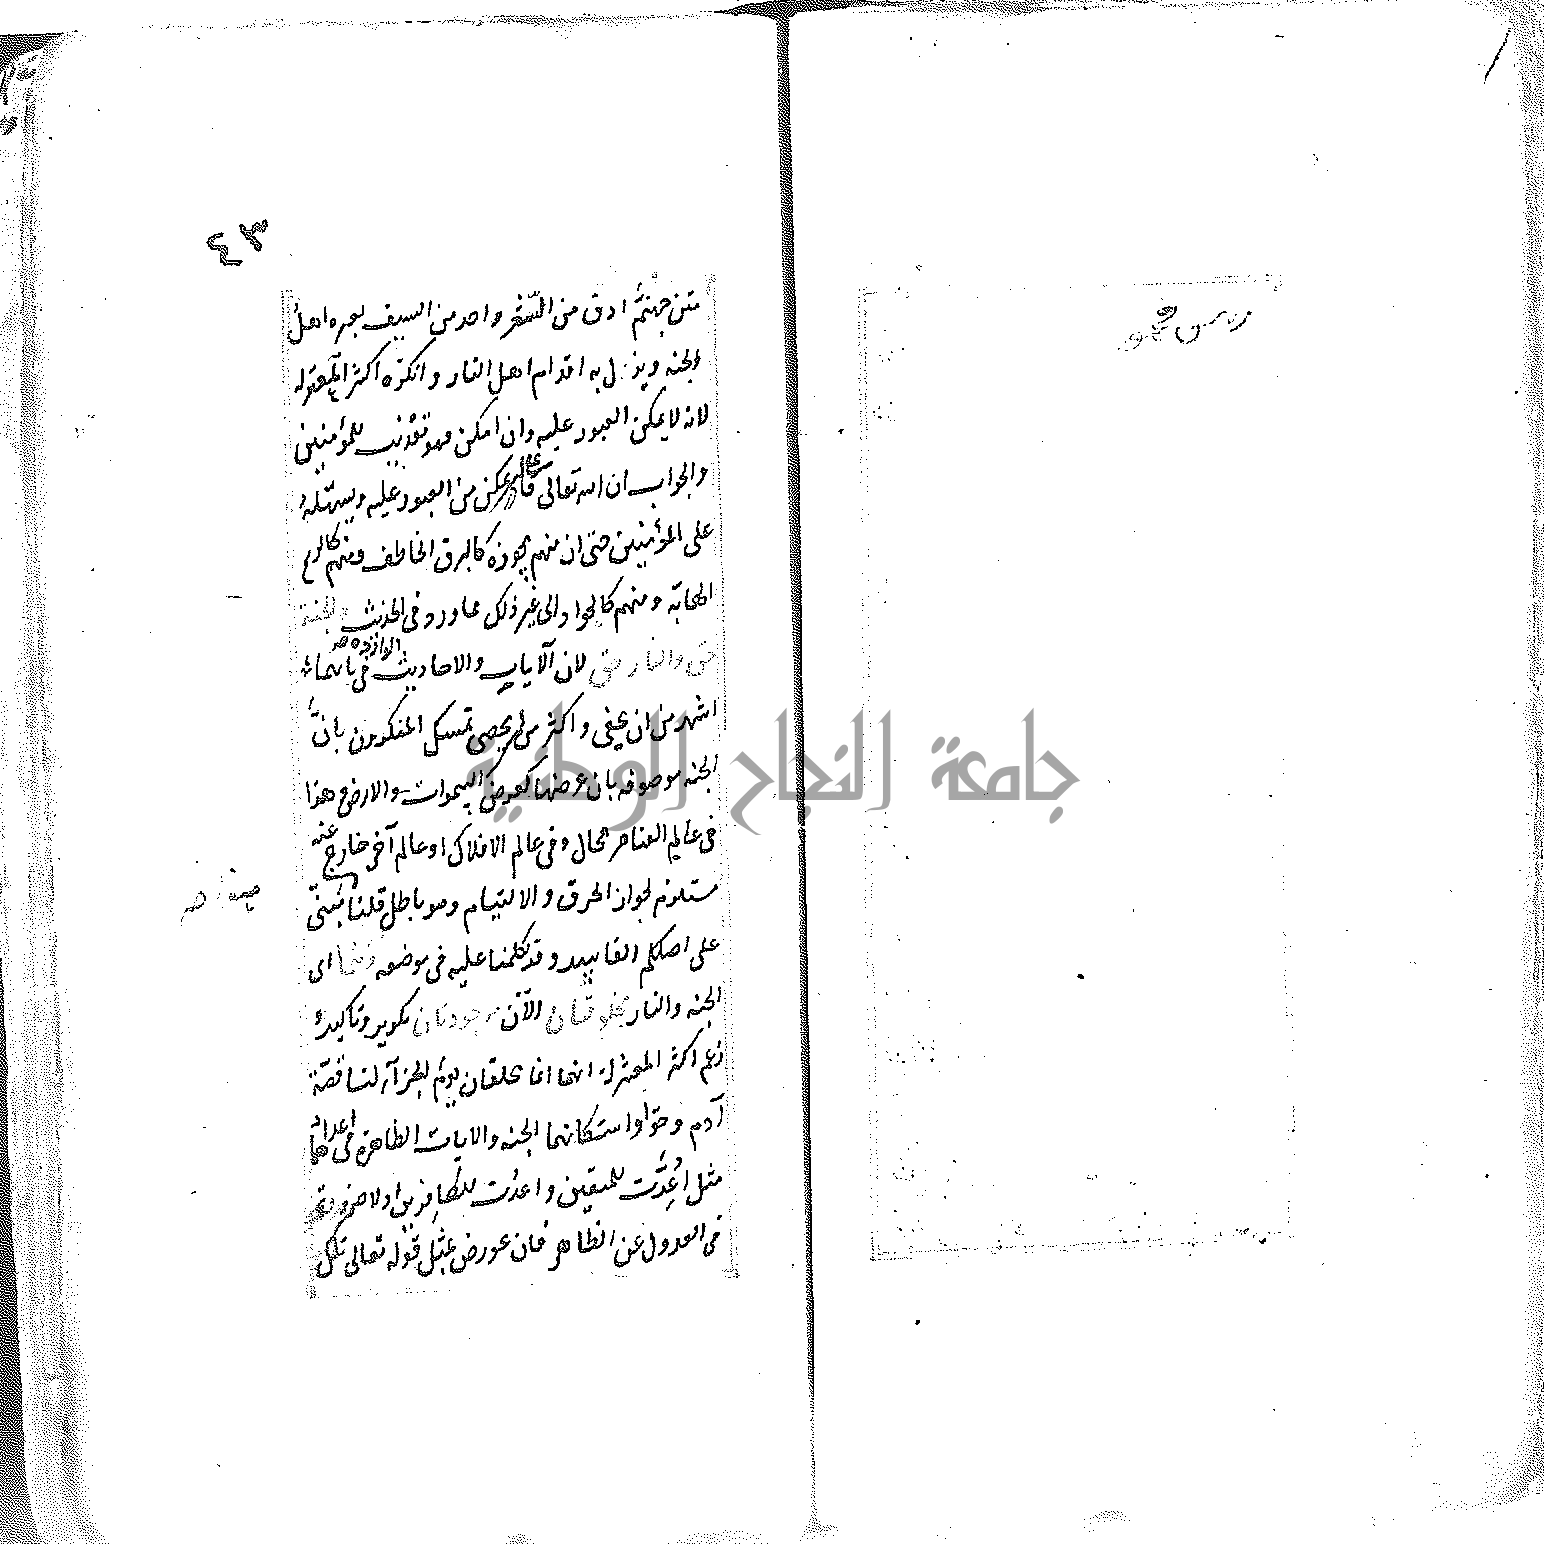 ٤٣
متن جهنم ادق من الشعر واحد من السيف يعبره اهل
الجنه ويزل به اقدام اهل النار وانكره اكثر المعتزله
لانه لا يمكن العبور عليه وان امكن فهو تعذيب للمؤمنين
والجواب ان الله تعالى قادر على ان يمكن من العبور عليه ويسهله
على المؤمنين حتى ان منهم يجوزه كالبرق الخاطف ومنهم كالريح
الهابّة ومنهم كالجواد الى غير ذلك مما ورد فى الحديث والجنة
حق والنار حق لان الآيات والاحاديث الوارده فى
اشهر من ان يخفى واكثر من ان يحصى تمسك المنكرون بانّ
الجنه موصوفه بان عرضها كعرض السموات والارض وهذا
فى عالم العناصر محال وفى عالم الافلاك او عالم آخر خارج عنه
مستلزم لجواز الخرق والالتيام وهو باطل قلنا
على اصلكم الفاسد وقد تكلمنا عليه فى موضعه وهما اى
الجنه والنار مخلوقتان الآن موجودتان تكرير وتاكيد
زعم اكثر المعتزله انهما انما تخلقان يوم الجزآء لنا قصّة
آدم وحوّا واسكانهما الجنه والايات الظاهره فى اعدادهما
مثل اُعِدَّت للمتقين واعدت للكافرين اذ لا ضرورة
فى العدول عن الظاهر فان عورض بمثل قوله تعالى تلك
جامعة النجاح الوطنية